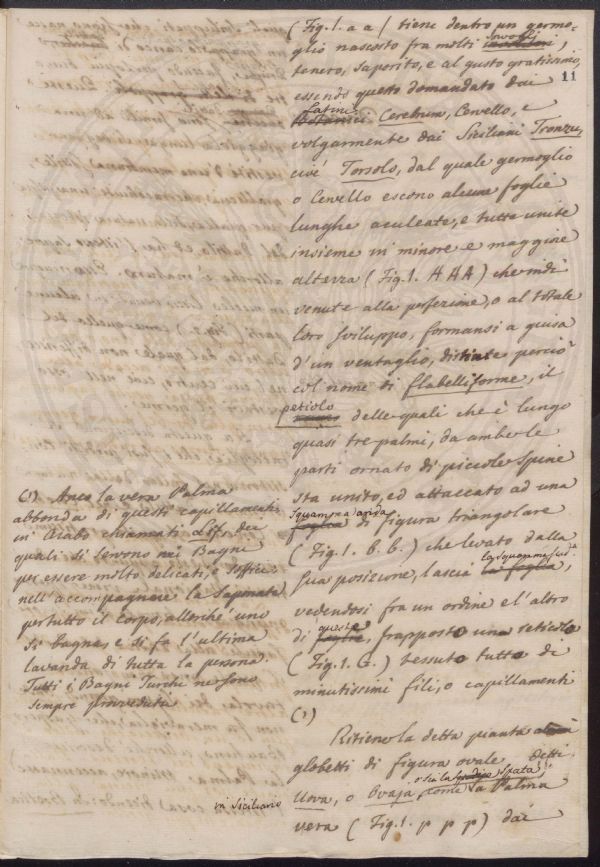 11
(Fig. 1. a a) tiene dentro un germo-
glio nascosto fra molti involti,
tenero, saporito, e al gusto gratissimo,
essendo questo domandato dai
Latini Cerebrum, Cervello, e
volgarmente dai Siciliani Tronzu,
cioè Torsolo, dal quale germoglio
o Cervello escono alcune foglie
lunghe aculeate, e tutte unite
insieme in minore e maggiore
altezza (Fig. 1. AAA) che indi
venute alla perfezione, o al totale
loro sviluppo, formansi a guisa
d'un ventaglio, distinte perciò
col nome di flabelliforme, il
petiolo delle quali che è lungo
quasi tre palmi, da ambe le
parti ornato di piccole spine
sta unito, ed attaccato ad una
squamma arida
foglia di figura triangolare
(Fig. 1. b. b.) che levato dalla
sua posizione, lascia la foglia,
vedendosi fra un ordine e l'altro
di queste
foglie, frapposto una reticola
(Fig. 1. G.) tessuto tutto di
minutissimi fili, o capillamenti
(1)
Ritiene la detta pianta
globetti di figura ovale detti
o sia la Spata
Uova, o Ovaja, come la Palma
vera (Fig. 1. p p p) dai
(1) Anco la vera Palma
abbonda di questi capillamenti
in Arabo chiamati Lifs, dei
quali si servono nei Bagni
per essere molto delicati, e
nell'accompagnare la Saponata
per tutto il corpo, allorché uno
si bagna, e si fa l'ultima
lavanda di tutta la persona.
Tutti i Bagni Turchi ne sono
sempre provveduti
in Siciliano